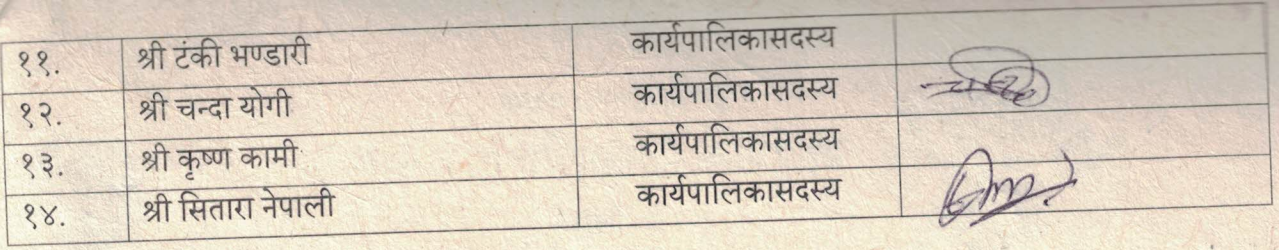 ११. श्री टंकी भण्डारी कार्यपालिकासदस्य
१२. श्री चन्दा योगी कार्यपालिकासदस्य
१३. श्री कृष्ण कामी कार्यपालिकासदस्य
१४. श्री सितारा नेपाली कार्यपालिकासदस्य